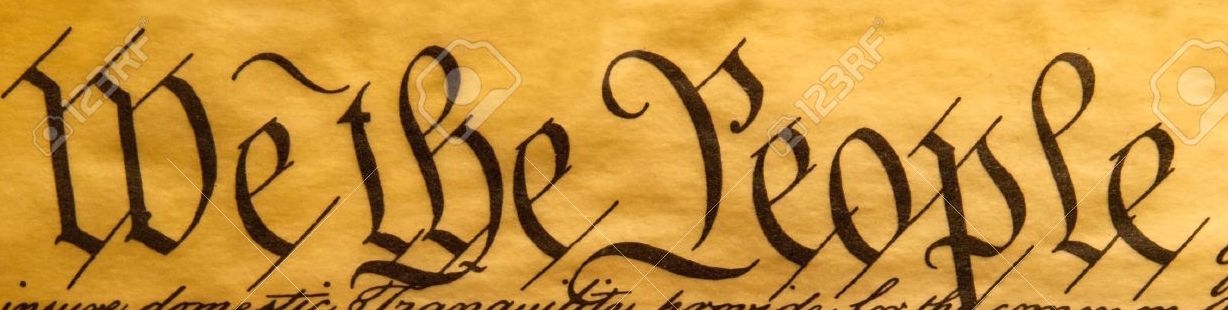 We the People
insure domestic Tranquility, provide for the common
123RF
123RF